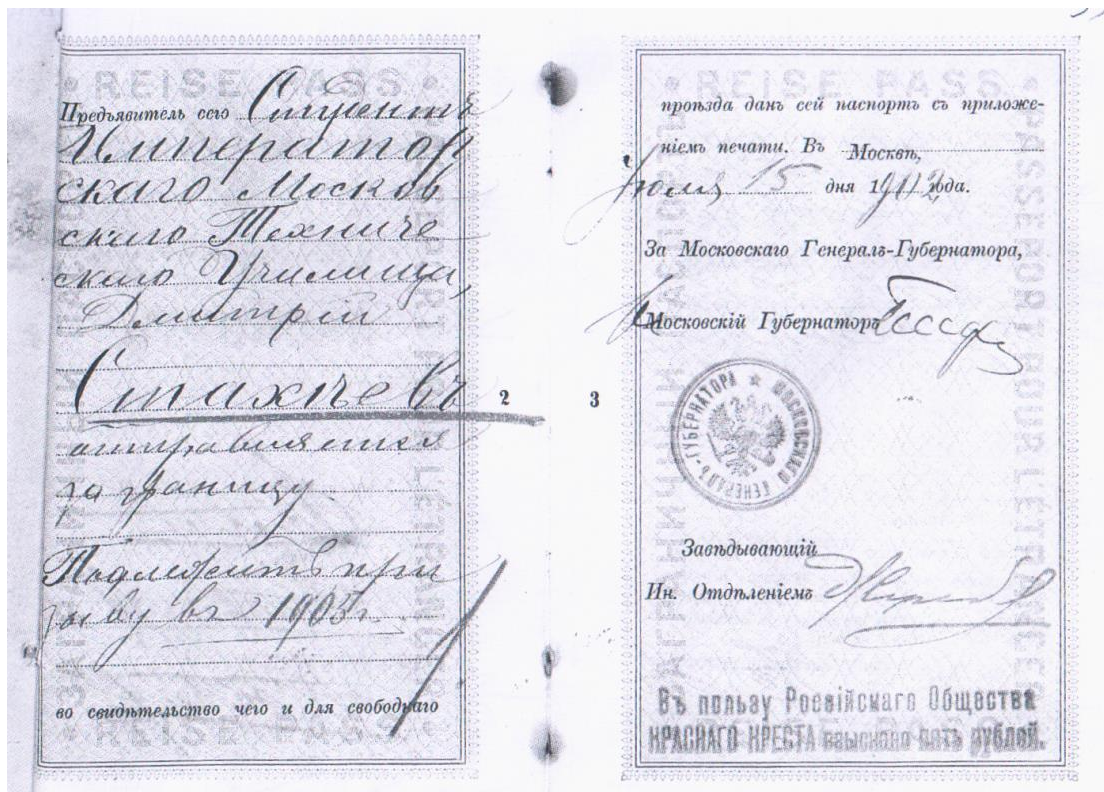 REISE PASS
Предъявитель сего Студентъ
Император
скаго Москов
скаго Техниче
скаго Училища,
Дмитрій
Стахѣевъ
отправляется
за границу.
Подлежитъ при
зыву въ 1905 г.
во свидѣтельство чего и для свободнаго
REISE PASS
2
3
REISE PASS
проѣзда данъ сей паспортъ съ приложе-
ніемъ печати. Въ Москвѣ,
Іюля 15 дня 1902 года.
За Московскаго Генералъ-Губернатора,
Московскій Губернаторъ
МОСКОВСКАГО ГЕНЕРАЛЪ-ГУБЕРНАТОРА
Завѣдывающій
Ин. Отдѣленіемъ
PASSEPORT POUR L'ÉTRANGER
Въ пользу Россійскаго Общества
КРАСНАГО КРЕСТА взыскано пять рублей.